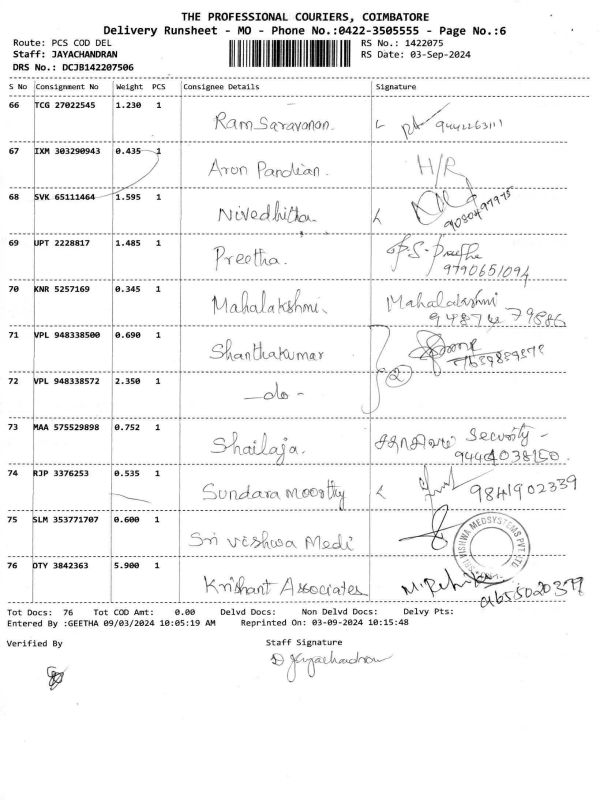 THE PROFESSIONAL COURIERS, COIMBATORE
Delivery Runsheet - MO - Phone No.:0422-3505555 - Page No.:6
Route: PCS COD DEL
RS No.: 1422075
Staff: JAYACHANDRAN
RS Date: 03-Sep-2024
DRS No.: DCJB142207506
S No Consignment No Weight PCS Consignee Details Signature
66 TCG 27022545 1.230 1
Ram Saravanan. 9442263111
67 IXM 303290943 0.435 1
Arun Pandian. H/R
68 SVK 65111464 1.595 1
Nivedhitha. 9080497975
69 UPT 2228817 1.485 1
Preetha. P.S. Preetha
9790651094
70 KNR 5257169 0.345 1
Mahalakshmi. Mahalakshmi
94874 79886
71 VPL 948338500 0.690 1
Shanthakumar
2
72 VPL 948338572 2.350 1
- do -
73 MAA 575529898 0.752 1
Shailaja. Security -
9444038150.
74 RJP 3376253 0.535 1
Sundara moorthy 9841902339
75 SLM 353771707 0.600 1
Sri Vishwa Medi
SRI VISHWA MEDSYSTEMS PVT LTD
76 DTY 3842363 5.900 1
Krishant Associates
9655020377
Tot Docs: 76 Tot COD Amt: 0.00 Delvd Docs: Non Delvd Docs: Delvy Pts:
Entered By :GEETHA 09/03/2024 10:05:19 AM Reprinted On: 03-09-2024 10:15:48
Verified By Staff Signature
D Jeyachandran